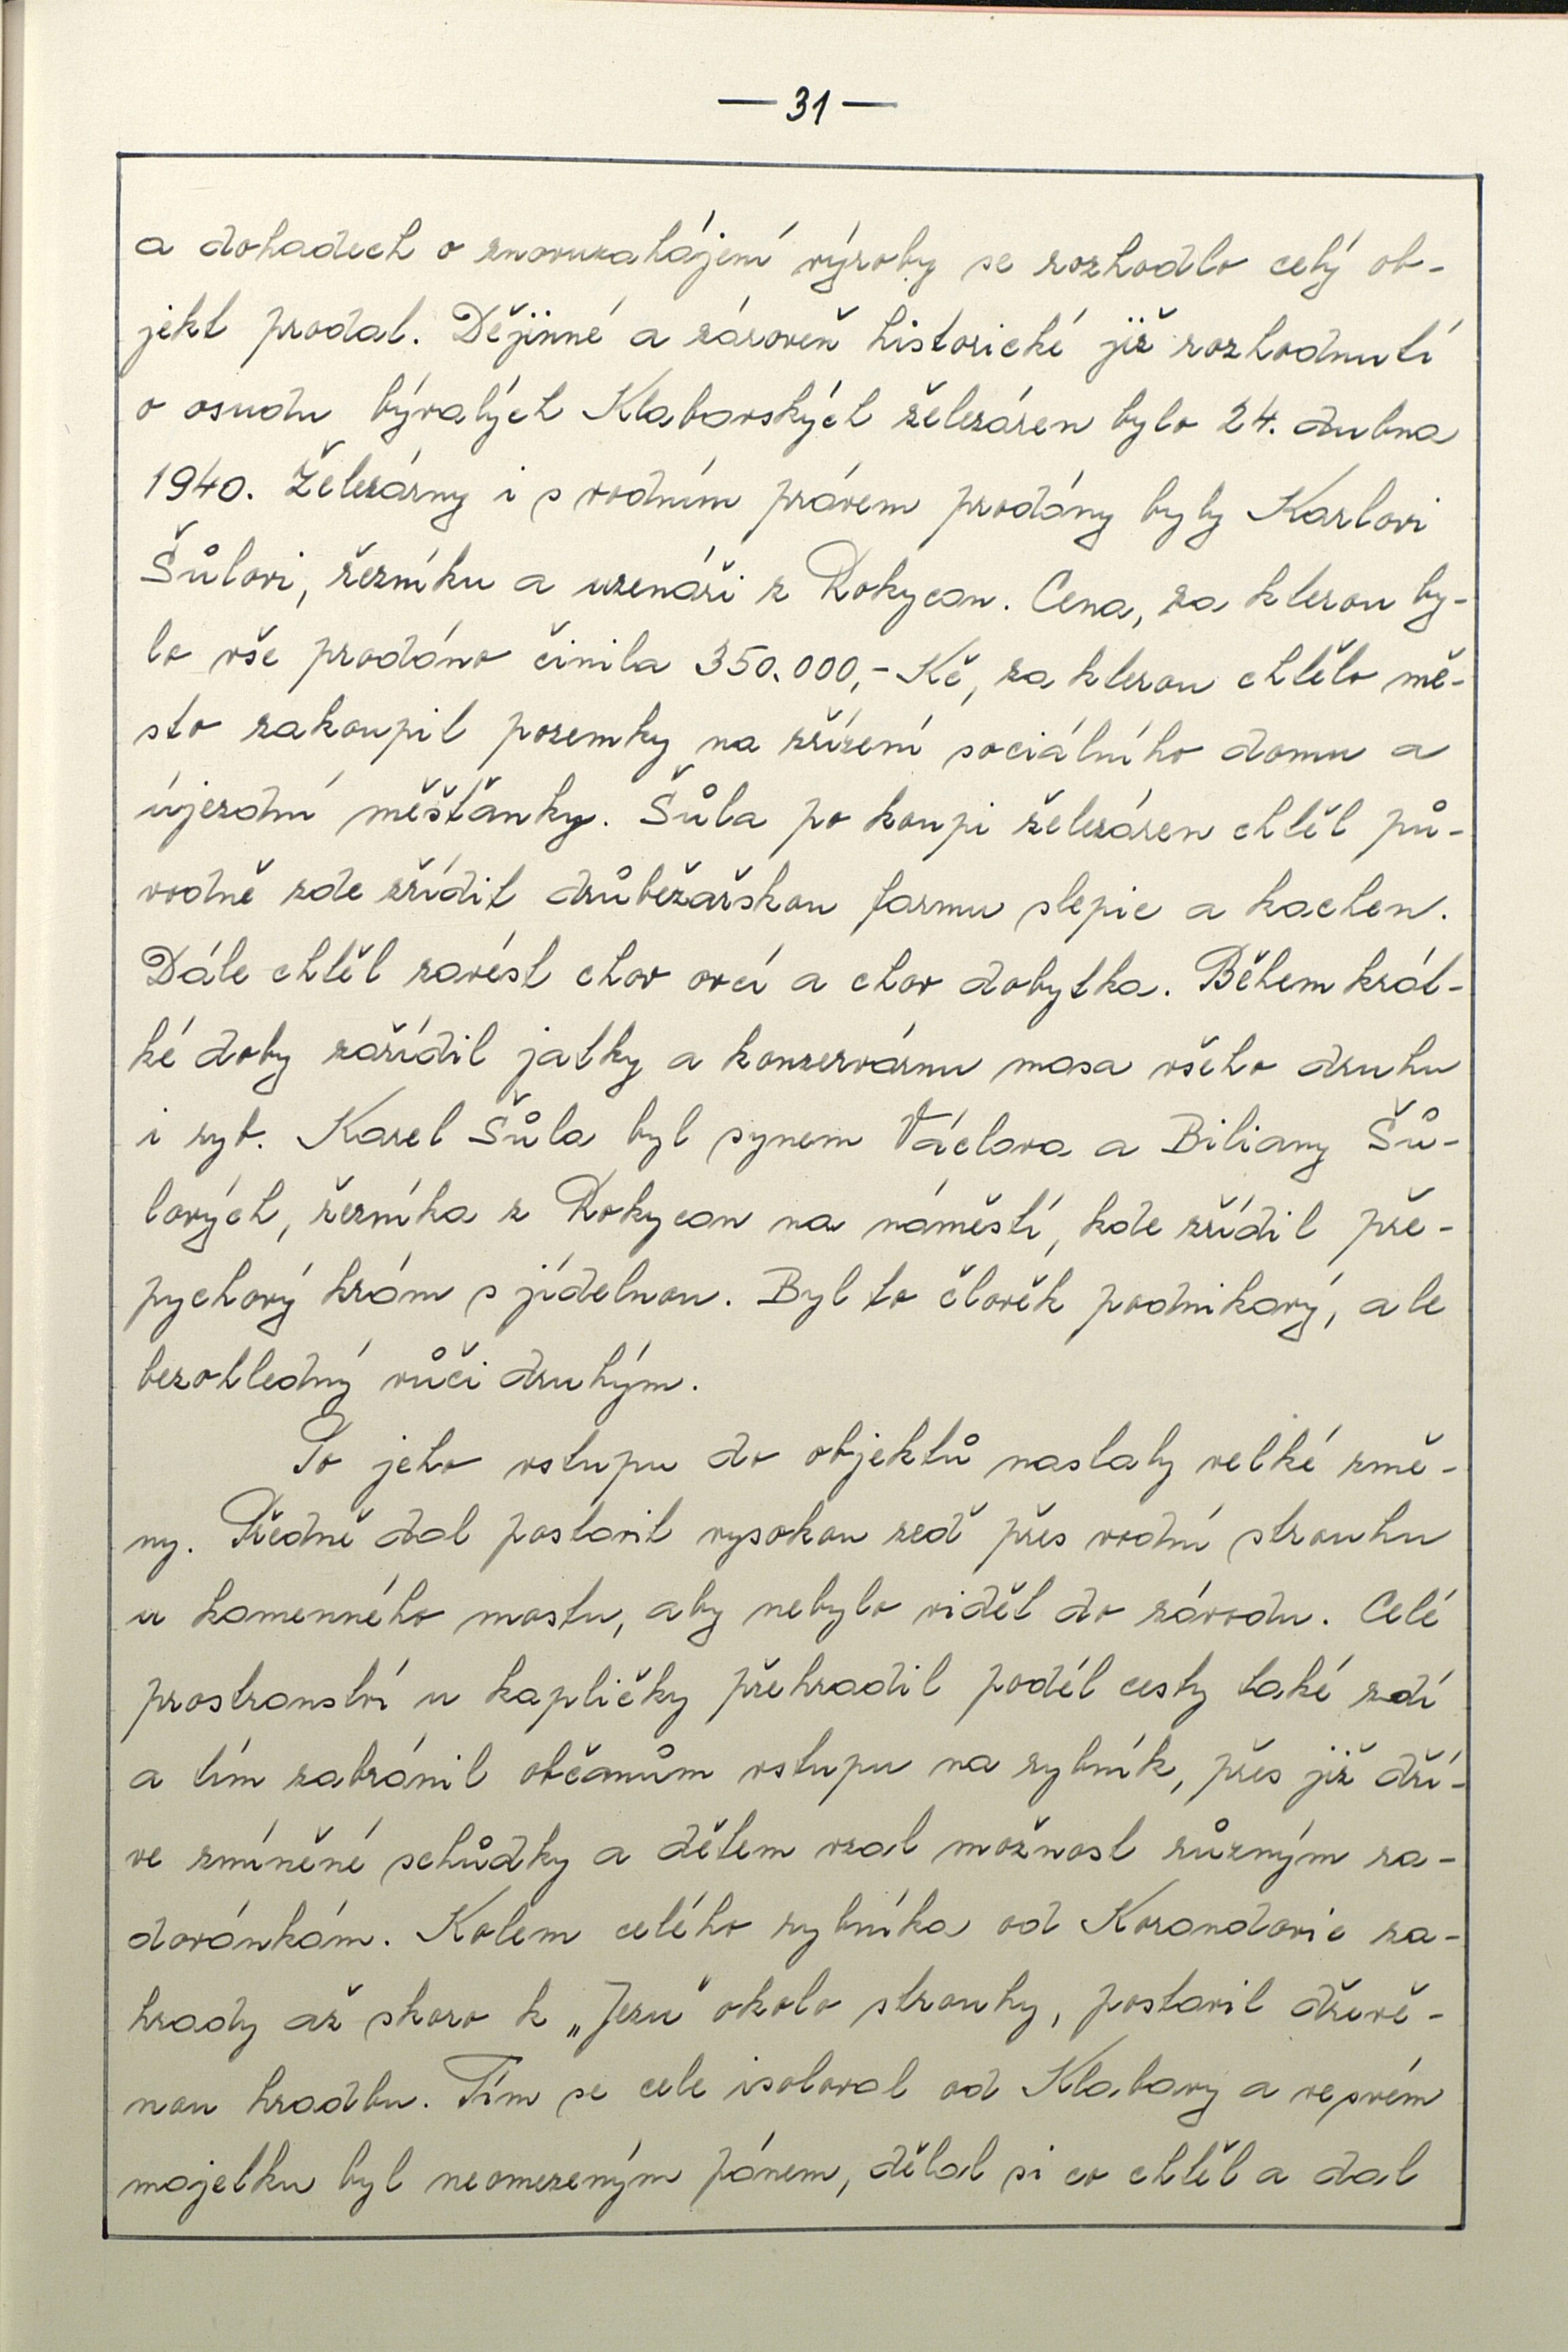 — 31 —
a dohadech o znovuzahájení výroby se rozhodlo celý ob-
jekt prodat. Dějinné a zároveň historické již rozhodnutí
o osudu bývalých Klabavských železáren bylo 24. dubna
1940. Železárny i s vodním právem prodány byly Karlovi
Šůlovi, řezníku a uzenáři z Rokycan. Cena, za kterou by-
lo vše prodáno činila 350.000,- Kč, za kterou chtělo mě-
sto zakoupit pozemky na zřízení sociálního domu a
újezdní měšťanky. Šůla po koupi železáren chtěl pů-
vodně zde zřídit drůbežařskou farmu slepic a kachen.
Dále chtěl zavést chov ovcí a chov dobytka. Během krát-
ké doby zařídil jatky a konzervárnu masa všeho druhu
i ryb. Karel Šůla byl synem Václava a Biliany Šů-
lových, řezníka z Rokycan na náměstí, kde zřídil pře-
pychový krám s jídelnou. Byl to člověk podnikavý, ale
bezohledný vůči druhým.
Po jeho vstupu do objektů nastaly velké změ-
ny. Předně dal postavit vysokou zeď přes vodní strouhu
u kamenného mostu, aby nebylo vidět do závodu. Celé
prostranství u kapličky přehradil podél cesty také zdí
a tím zabránil občanům vstupu na rybník, přes již dří-
ve zmíněné schůdky a dětem vzal možnost různým ra-
dovánkám. Kolem celého rybníka od Korandovic za-
hrady až skoro k „Jezu" okolo strouhy, postavil dřevě-
nou hradbu. Tím se cele isoloval od Klabavy a ve svém
majetku byl neomezeným pánem, dělal si co chtěl a dal